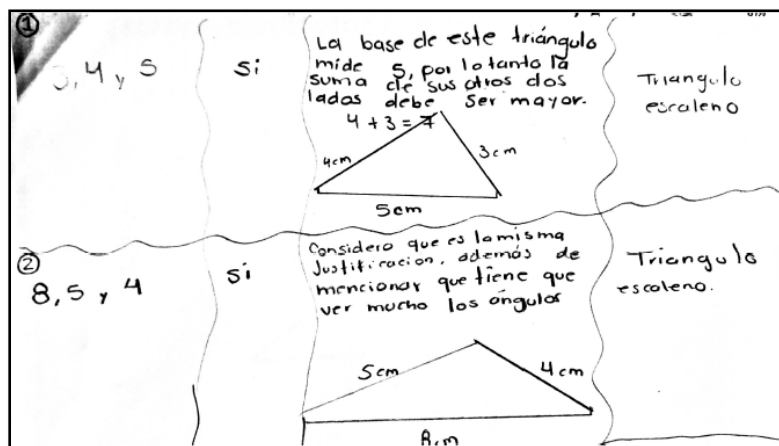 ①
3, 4 y 5
Si
La base de este triángulo
mide 5, por lo tanto la
suma de sus otros dos
lados debe ser mayor.
4 + 3 = 7
4cm
3cm
5cm
Triangulo
escaleno
②
8, 5 y 4
Si
Considero que es la misma
Justificación, además de
mencionar que tiene que
ver mucho los ángulos
5cm
4cm
Triangulo
escaleno.